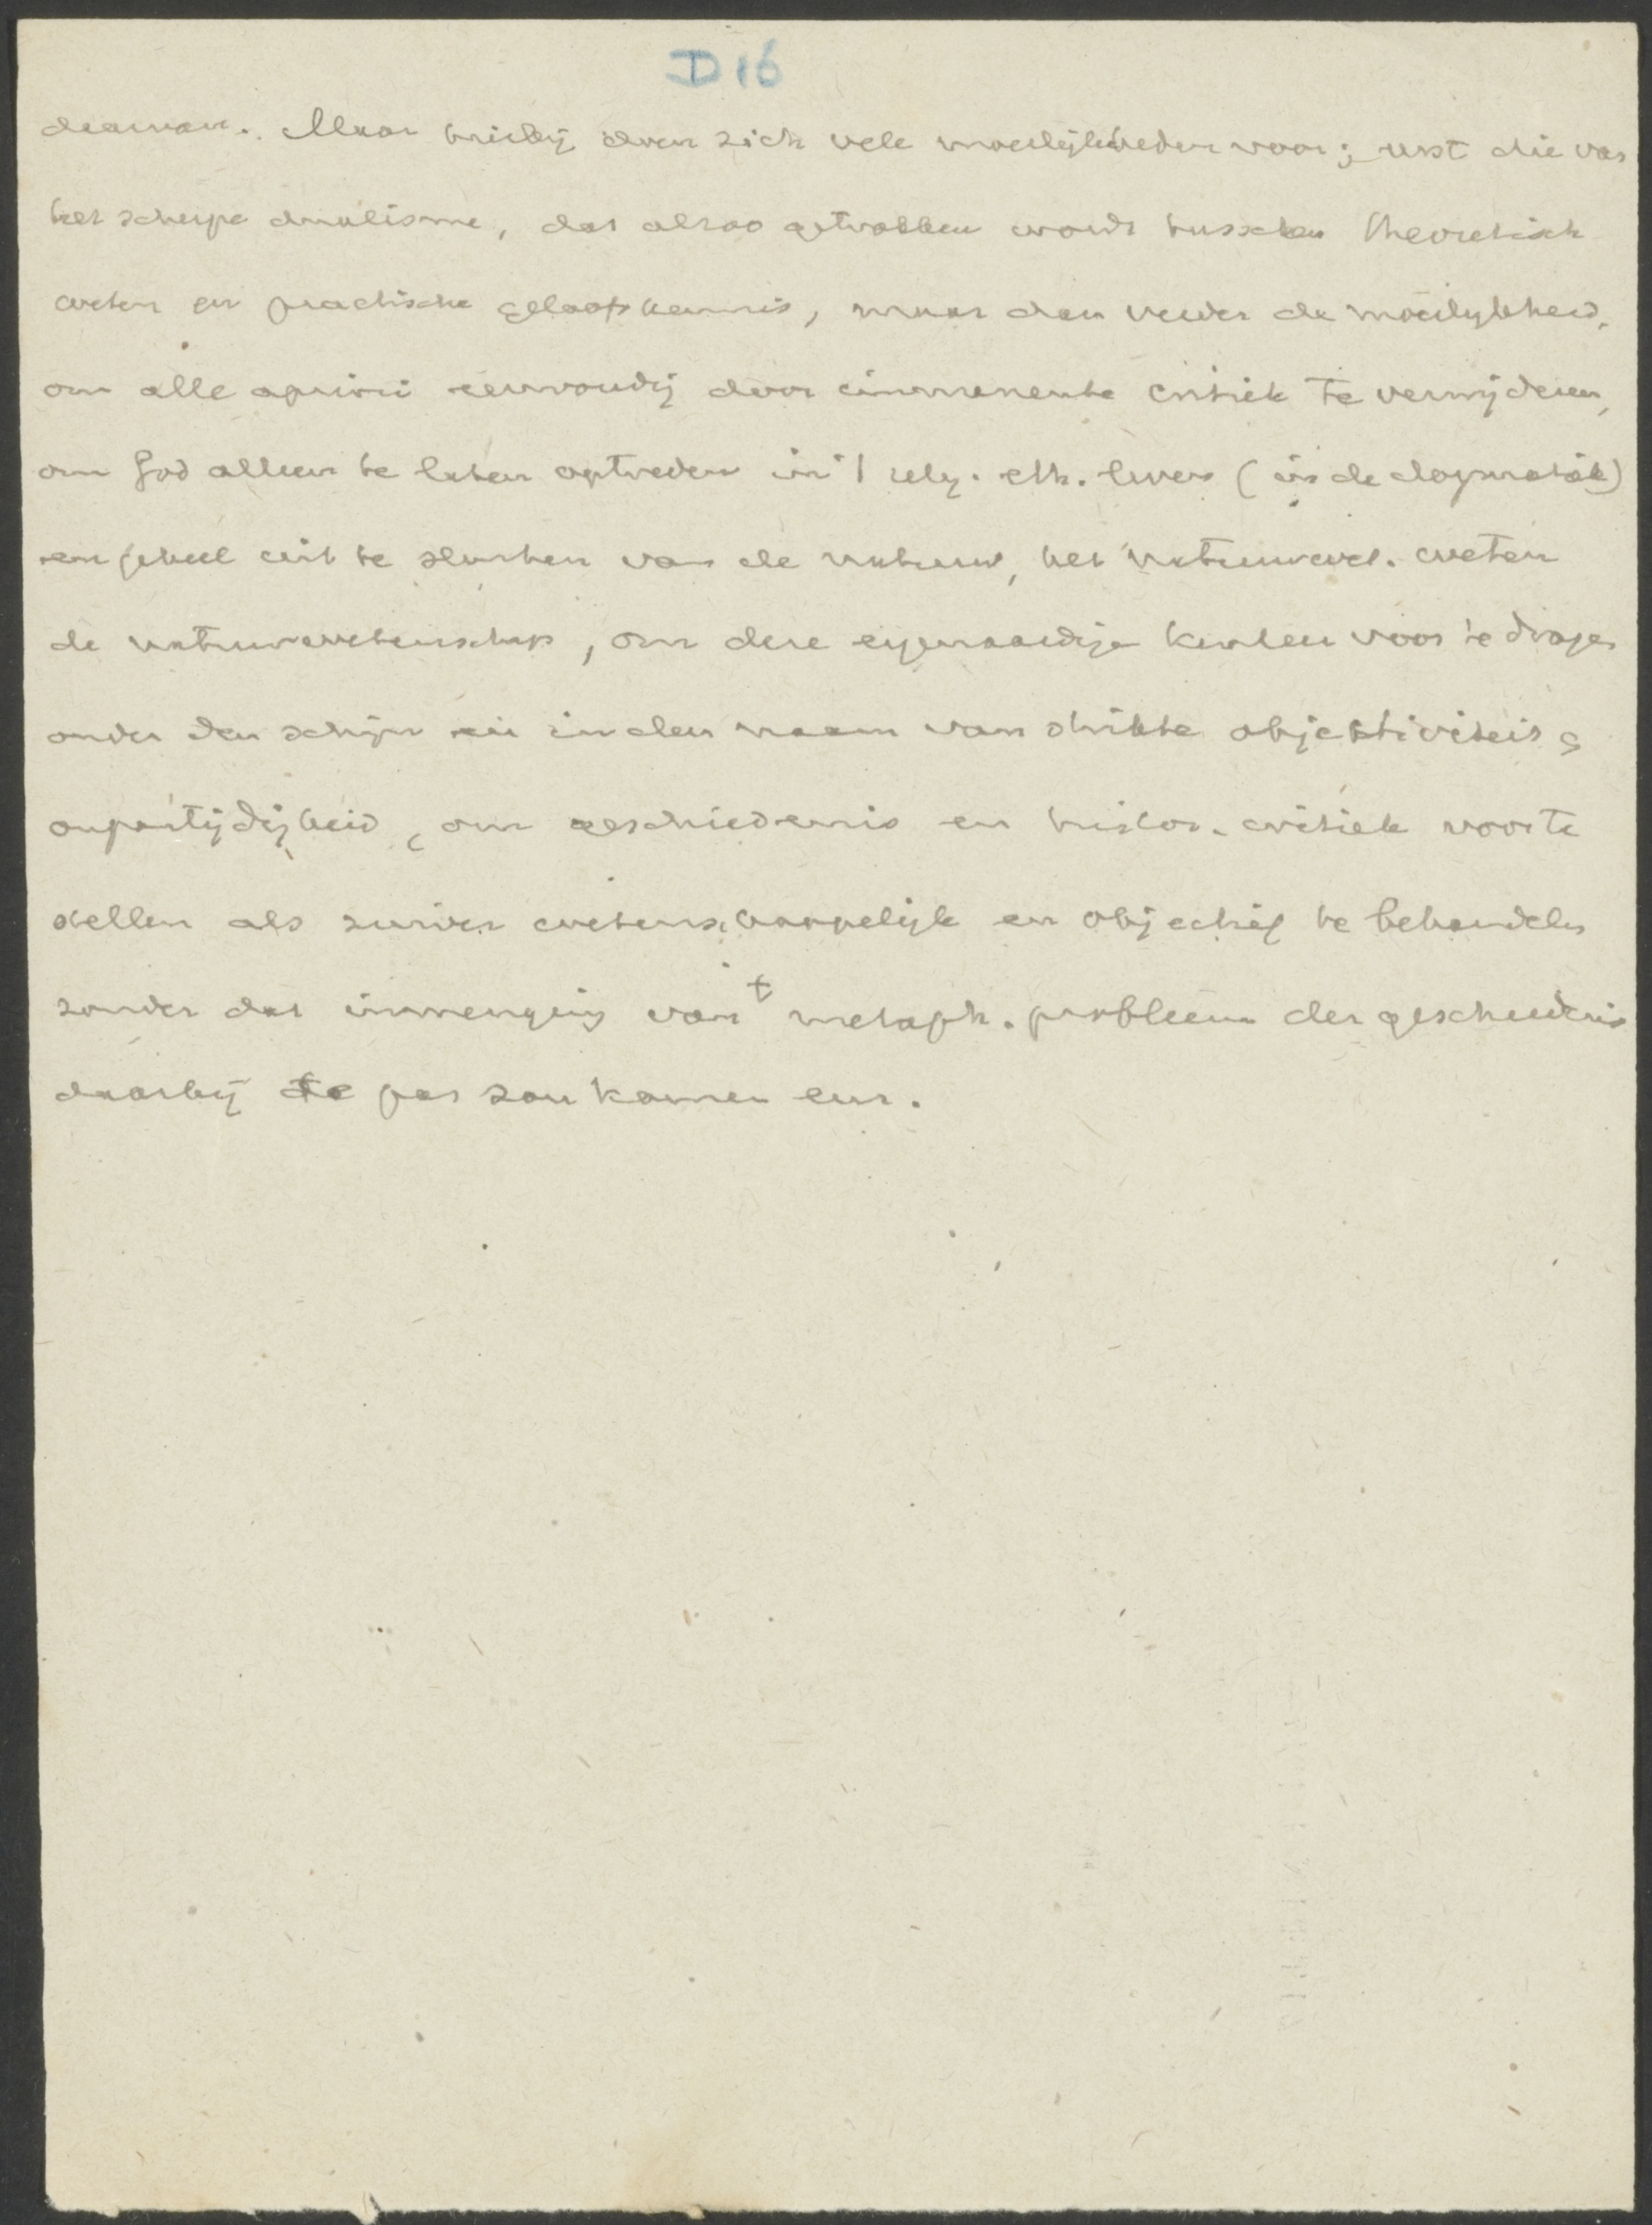 D 16
daarvan. Maar hierbij doen zich vele moeilijkheden voor; eerst die van
het scherpe dualisme, dat alzoo getrokken wordt tusschen theoretisch
weten en practische geloofskennis, maar dan verder de moeilijkheid,
om alle apriori eenvoudig door immanente critiek te verwijderen,
om God alleen te laten optreden in 't relig. eth. leven (in de dogmatiek)
en geheel uit te sluiten van de natuur, het natuurwet. weten
de natuurwetenschap, om deze eigenaardige voor te dragen
onder den schijn en in den naam van strikte objektiviteit &
onpartijdigheid, om geschiedenis en histor. critiek voor te
stellen als zuiver wetenschappelijk en objectief te behandelen
zonder dat inmenging van 't metaph. probleem der geschiedenis
daarbij te pas zou komen enz.